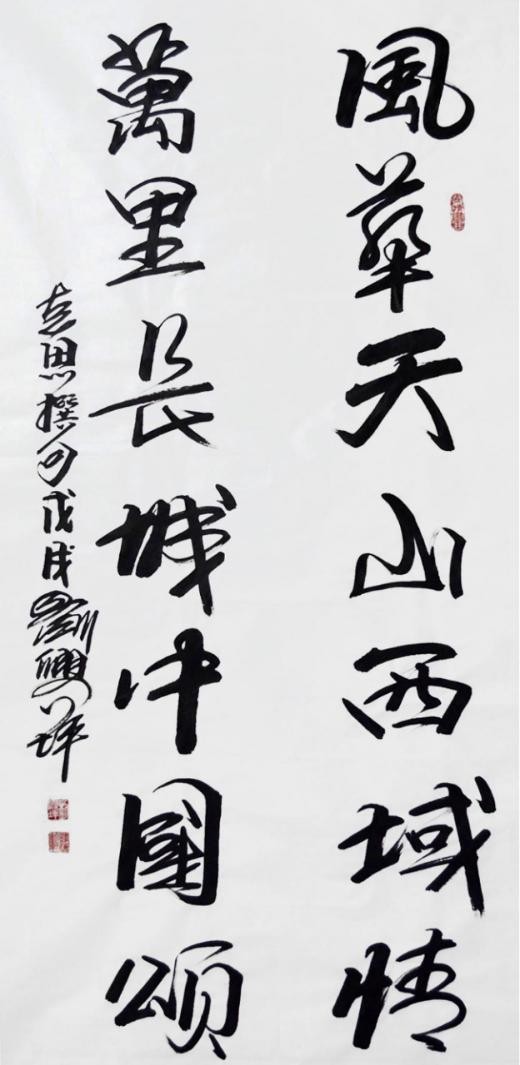 風華天山西域情
萬里長城中國頌
思撰句戊戌劉